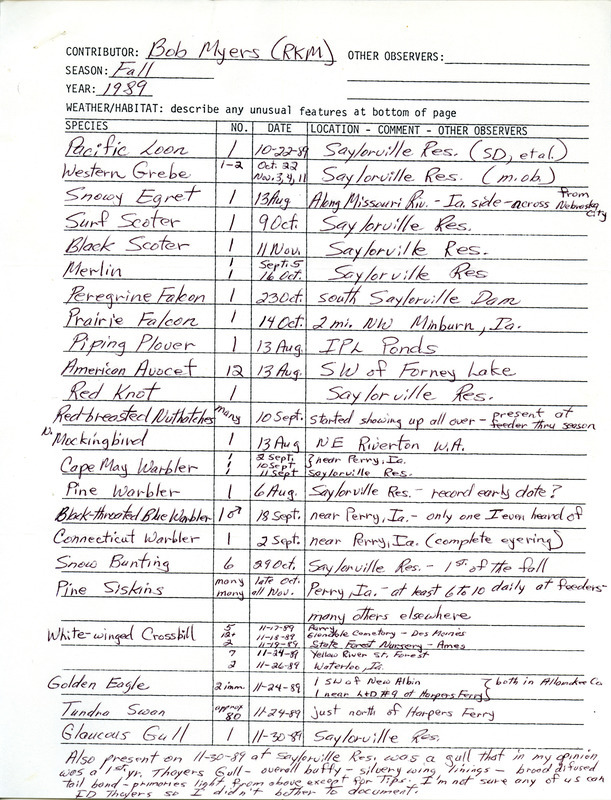 CONTRIBUTOR: Bob Myers (RKM) OTHER OBSERVERS:
SEASON: Fall
YEAR: 1989
WEATHER/HABITAT: describe any unusual features at bottom of page
SPECIES NO. DATE LOCATION - COMMENT - OTHER OBSERVERS
Pacific Loon 1 10-22-89 Saylorville Res. (SD, et al.)
Western Grebe 1-2 Oct. 22 Nov. 3, 4, 11 Saylorville Res. (m.ob.)
Snowy Egret 1 13 Aug Along Missouri Riv. - Ia. side - across from Nebraska City
Surf Scoter 1 9 Oct. Saylorville Res.
Black Scoter 1 11 Nov. Saylorville Res.
Merlin 1 Sept. 5
1 16 Oct. Saylorville Res
Peregrine Falcon 1 23 Oct. south Saylorville Dam
Prairie Falcon 1 14 Oct. 2 mi. NW Minburn, Ia.
Piping Plover 1 13 Aug. IPL Ponds
American Avocet 12 13 Aug. SW of Forney Lake
Red Knot 1 Saylorville Res.
Red-breasted Nuthatches many 10 Sept. started showing up all over - present at feeder thru season
N. Mockingbird 1 13 Aug NE Riverton W.A.
Cape May Warbler 1 2 Sept.
1 10 Sept. } near Perry, Ia.
1 11 Sept Saylorville Res.
Pine Warbler 1 6 Aug. Saylorville Res. - record early date?
Black-throated Blue Warbler 1 ♂ 18 Sept. near Perry, Ia. - only one I even heard of
Connecticut Warbler 1 2 Sept. near Perry, Ia. (complete eyering)
Snow Bunting 6 29 Oct. Saylorville Res. - 1st of the fall
Pine Siskins many late Oct.
many all Nov. Perry, Ia. - at least 6 to 10 daily at feeders -
many others elsewhere
White-winged Crossbill 5 11-17-89 Perry
12+ 11-18-89 Glendale Cemetery - Des Moines
2 11-19-89 State Forest Nursery - Ames
7 11-24-89 Yellow River St. Forest
2 11-26-89 Waterloo, Ia.
Golden Eagle 2 imm. 11-24-89 1 SW of New Albin
1 near L+D #9 at Harpers Ferry } both in Allamakee Co.
Tundra Swan approx 80 11-24-89 just north of Harpers Ferry
Glaucous Gull 1 11-30-89 Saylorville Res.
Also present on 11-30-89 at Saylorville Res. was a gull that in my opinion
was a 1st yr. Thayers Gull - overall buffy - silvery wing linings - broad difused
tail band - primaries light, from above except for tips. I'm not sure any of us can
ID Thayers so I didn't bother to document.